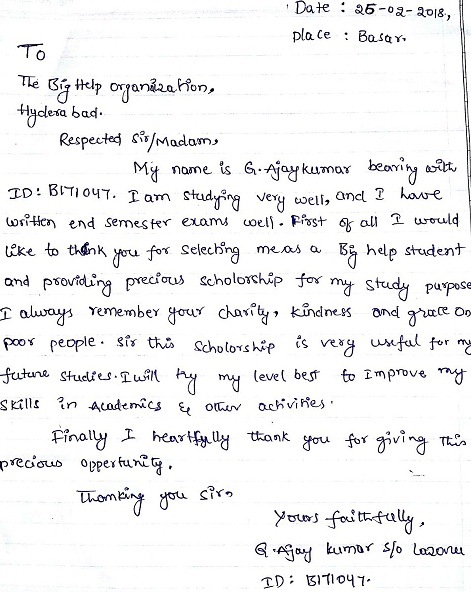 Date : 25-02-2018,
place : Basar.
To
The Big Help organization,
Hyderabad.
Respected Sir/Madam,
My name is G.Ajaykumar bearing with
ID: B171047. I am studying very well, and I have
written end semester exams well. First of all I would
like to thank you for selecting me as a Big help student
and providing precious scholorship for my study purpose
I always remember your charity, kindness and grace on
poor people. Sir this scholorship is very useful for my
future studies. I will try my level best to Improve my
skills in Academics & other activities.
Finally I heartfully thank you for giving this
precious oppertunity.
Thanking you Sir,
Yours faithfully,
G.Ajay kumar s/o
ID: B171047.